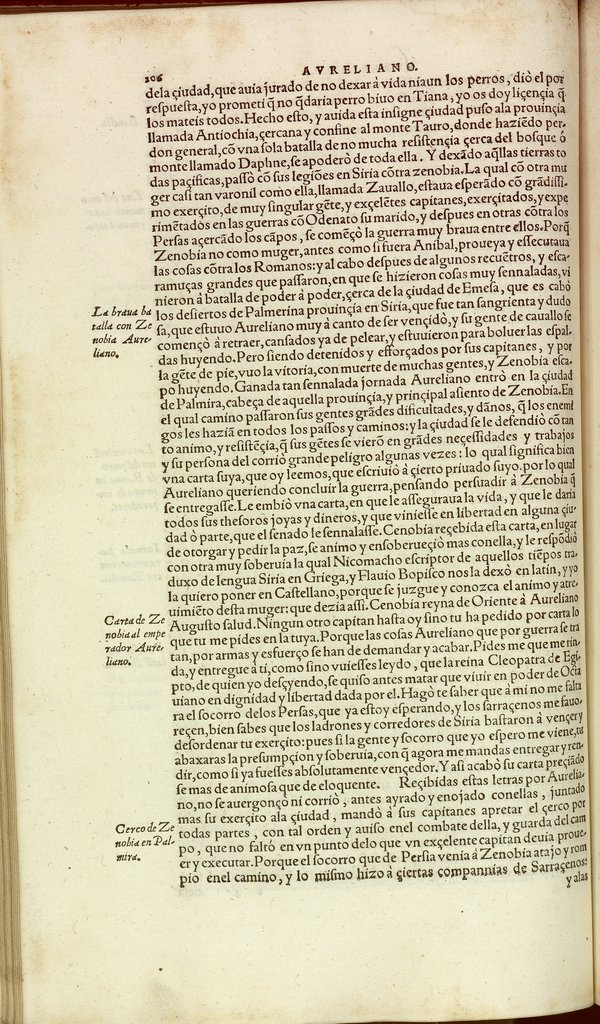 206
AVRELIANO.
dela çiudad, que auia jurado de no dexar à vida niaun los perros, diò el por
respuesta, yo prometi q̃ no q̃daria perro biuo en Tiana, yo os doy liçençia q̃
los mateis todos. Hecho esto, y auida esta insigne çiudad puso ala prouinçia
llamada Antiochia, çercana y confine al monte Tauro, donde haziẽdo per-
don general, cõ vna sola batalla de no mucha resistençia çerca del bosque ó
monte llamado Daphne, se apoderò de toda ella. Y dexãdo aq̃llas tierras to
das paçificas, passò cõ sus legiões en Siria cõtra zenobia. La qual cõ otra mu
ger casi tan varonil como ella, llamada Zauallo, estaua esperãdo cõ grãdissi-
mo exerçito, de muy singular gẽte, y exçelẽtes capitanes, exerçitados, y expe
rimẽtados en las guerras cõ Odenato su marido, y despues en otras cõtra los
Persas açercãdo los cãpos, se comẽçò la guerra muy braua entre ellos. Porq̃
Zenobia no como muger, antes como si fuera Anibal, proueya y essecutaua
las cosas cõtra los Romanos: y al cabo despues de algunos recuẽtros, y esca-
ramuças grandes que passaron, en que se hizieron cosas muy sennaladas, vi
nieron à batalla de poder à poder, çerca de la çiudad de Emesa, que es cabò
los desiertos de Palmerina prouinçia en Siria, que fue tan sangrienta y dudo
sa, que estuuo Aureliano muy à canto de ser vençido, y su gente de cauallo se
començò à retraer, cansados ya de pelear, y estuuieron para boluer las espal-
das huyendo. Pero siendo detenidos y efforçados por sus capitanes, y por
la gẽte de pie, vuo la vitoria, con muerte de muchas gentes, y Zenobia esca-
po huyendo. Ganada tan sennalada jornada Aureliano entrò en la çiudad
de Palmira, cabeça de aquella prouinçia, y prinçipal asiento de Zenobia. En
el qual camino passaron sus gentes grãdes dificultades, y dãnos, q̃ los enemi
gos les haziã en todos los passos y caminos: y la çiudad se le defendiò cõ tan
to animo, y resistẽçia, q̃ sus gẽtes se vierõ en grãdes neçessidades y trabajos
y su persona del corriò grande peligro algunas vezes: lo qual significa bien
vna carta suya, que oy leemos, que escriuiò à çierto priuado suyo. por lo qual
Aureliano queriendo concluir la guerra, pensando persuadir à Zenobia q̃
se entregasse. Le embiò vna carta, en que le asseguraua la vida, y que le daria
todos sus thesoros joyas y dineros, y que viniesse en libertad en alguna çiu-
dad ò parte, que el senado le sennalasse. Cenobia reçebida esta carta, en lugar
de otorgar y pedir la paz, se animo y ensoberueçiò mas conella, y le respõdiò
con otra muy soberuia la qual Nicomacho escriptor de aquellos tiẽpos tra-
duxo de lengua Siria en Griega, y Flauio Bopisco nos la dexò en latin, y yo
la quiero poner en Castellano, porque se juzgue y conozca el animo y atre-
uimiẽto desta muger: que dezia assi. Cenobia reyna de Oriente à Aureliano
Augusto salud. Ningun otro capitan hasta oy sino tu ha pedido por carta lo
que tu me pides en la tuya. Porque las cosas Aureliano que por guerra se tra
tan, por armas y esfuerço se han de demandar y acabar. Pides me que me rin-
da, y entregue à ti, como sino vuiesses leydo, que la reina Cleopatra de Egi-
pto, de quien yo desçyendo, se quiso antes matar que viuir en poder de Octa
uiano en dignidad y libertad dada por el. Hagò te saber que à mi no me falta
ra el socorro delos Persas, que ya estoy esperando, y los sarraçenos me fauo-
reçen, bien sabes que los ladrones y corredores de Siria bastaron à vençer y
desordenar tu exerçito: pues si la gente y socorro que yo espero me viene, tu
abaxaras la presumpçion y soberuia, con q̃ agora me mandas entregar y ren-
dir, como si ya fuesses absolutamente vençedor. Y asi acabò su carta preçiado
se mas de animosa que de eloquente. Reçibidas estas letras por Aurelia-
no, no se auergonçò ni corriò, antes ayrado y enojado conellas, juntado
mas su exerçito ala çiudad, mandò à sus capitanes apretar el çerco por
todas partes, con tal orden y auiso enel combate della, y guarda del cam
po, que no faltò en vn punto delo que vn exçelente capitan deuia proue-
er y executar. Porque el socorro que de Persia venia à Zenobia atajo y rom
piò enel camino, y lo mismo hizo à çiertas compannias de Sarraçenos:
y alas
La braua ba
talla con Ze
nobia Aure-
liano.
Carta de Ze
nobia al empe
rador Aure-
liano.
Cerco de Ze
nobia en Pal-
mira.